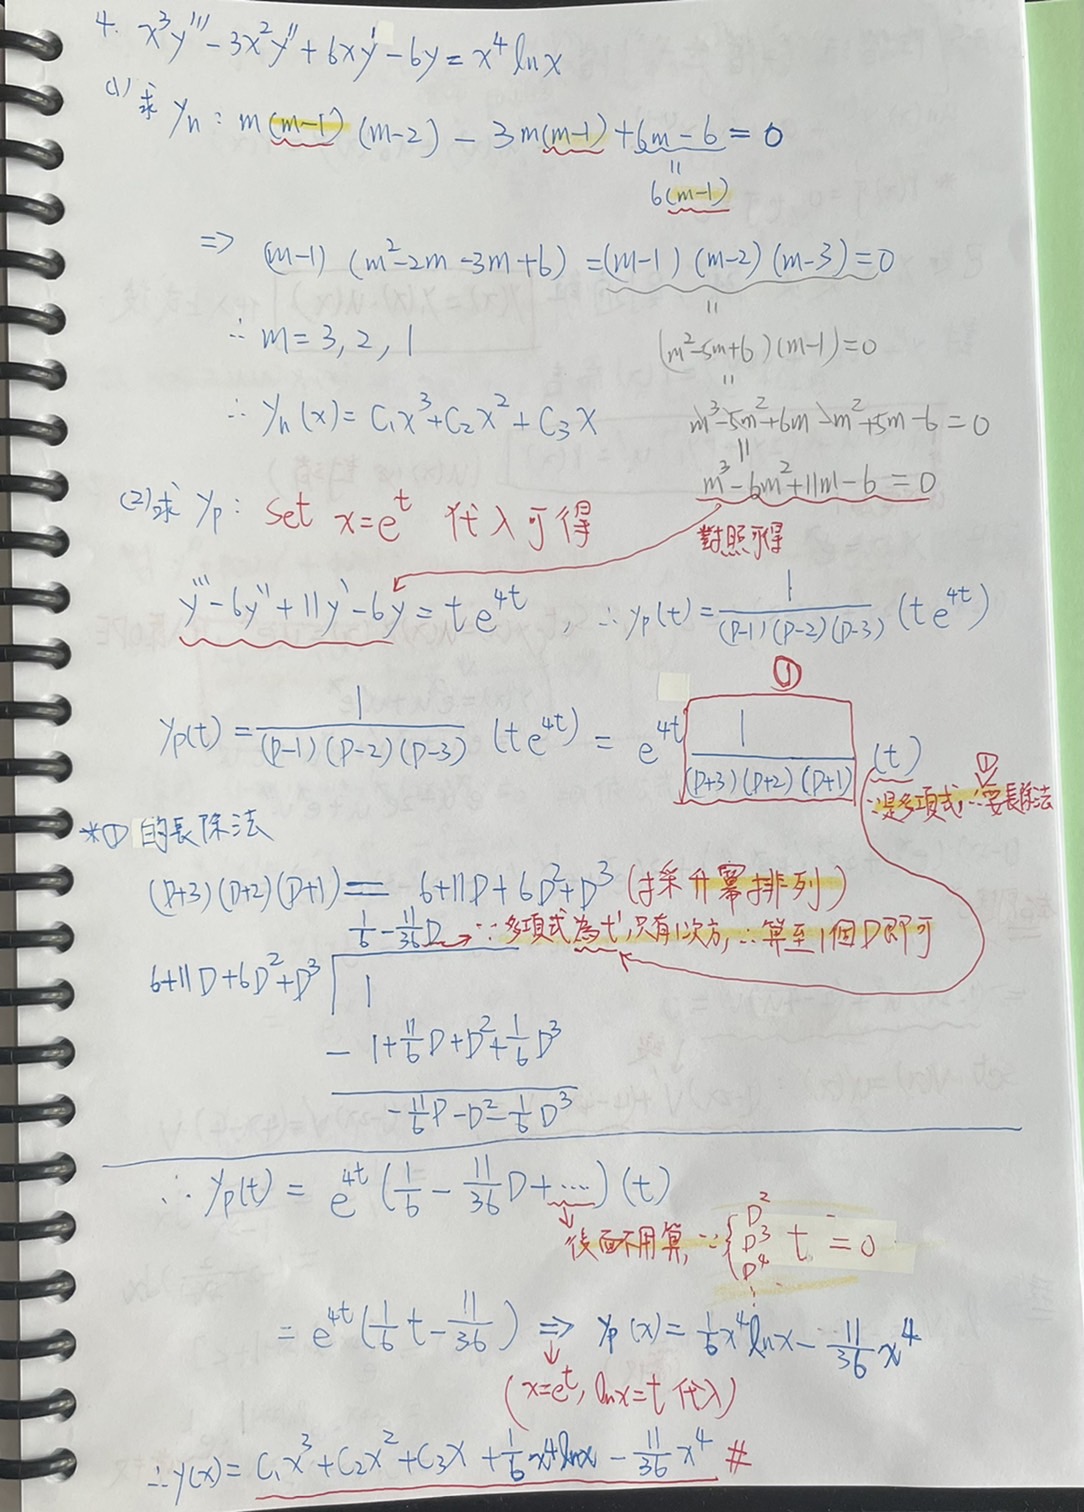 4. x³y''' - 3x²y'' + 6xy' - 6y = x⁴ ln x
(1) 求 yₕ : m(m-1)(m-2) - 3m(m-1) + 6m - 6 = 0
||
6(m-1)
⇒ (m-1)(m²-2m-3m+6) = (m-1)(m-2)(m-3) = 0
||
∴ m = 3, 2, 1
(m²-5m+6)(m-1) = 0
||
∴ yₕ(x) = C₁x³ + C₂x² + C₃x
m³-5m²+6m-m²+5m-6 = 0
||
m³-6m²+11m-6 = 0
(2) 求 yₚ : Set x = eᵗ 代入可得
對照可得
y''' - 6y'' + 11y' - 6y = te⁴ᵗ, ∴ yₚ(t) = 1/((D-1)(D-2)(D-3)) (te⁴ᵗ)
①
yₚ(t) = 1/((D-1)(D-2)(D-3)) (te⁴ᵗ) = e⁴ᵗ 1/((D+3)(D+2)(D+1)) (t)
①
∵是多項式, ∴要長除法
*① 的長除法
(D+3)(D+2)(D+1) = 6+11D+6D²+D³ (採升冪排列)
1/6 - 11/36 D → ∵多項式為t¹, 只有1次方, ∴算至1個D即可
6+11D+6D²+D³ 1
- 1+11/6 D+D²+1/6 D³
-11/6 D-D²-1/6 D³
∴ yₚ(t) = e⁴ᵗ(1/6 - 11/36 D + ....)(t)
後面不用算, ∵{D² D³ D⁴ ⋮ t = 0
= e⁴ᵗ(1/6 t - 11/36) ⇒ yₚ(x) = 1/6 x⁴ ln x - 11/36 x⁴
(x=eᵗ, ln x=t 代入)
∴ y(x) = C₁x³ + C₂x² + C₃x + 1/6 x⁴ ln x - 11/36 x⁴ #